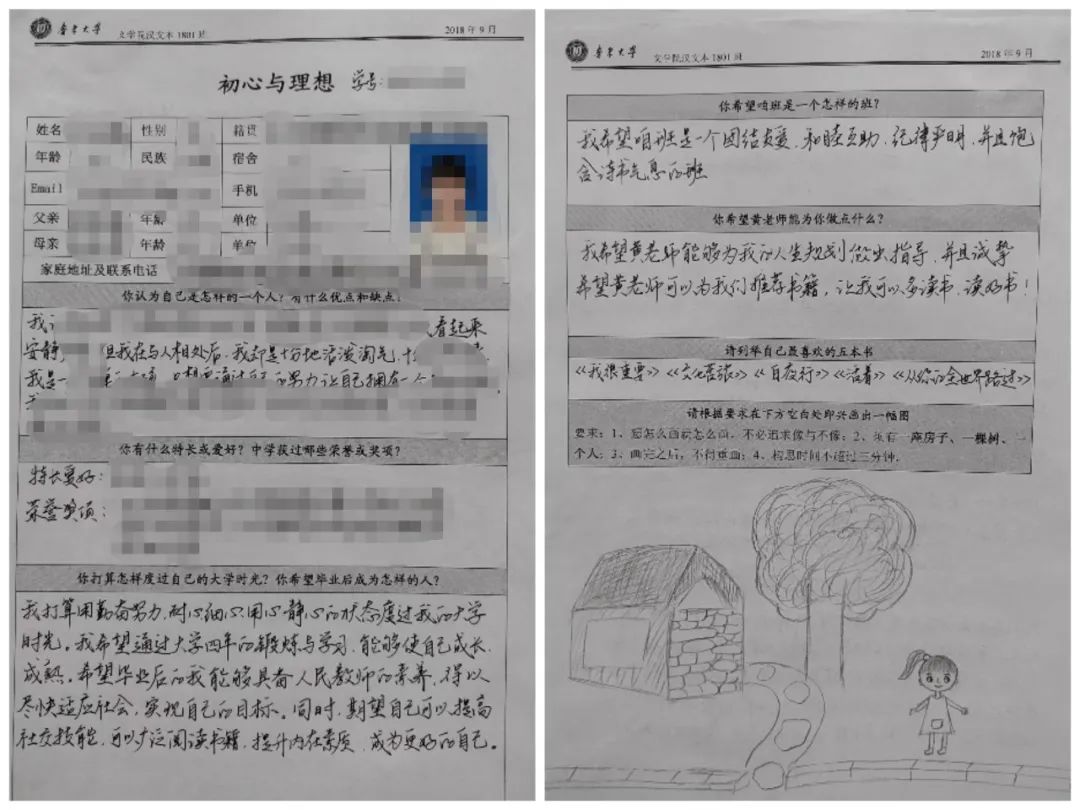 鲁东大学
文学院汉文本1801班
2018年9月
初心与理想 学号:
姓名 性别 籍贯
年龄 民族 宿舍
Email 手机
父亲 年龄 单位
母亲 年龄 单位
家庭地址及联系电话
你认为自己是怎样的一个人?有什么优点和缺点?
看起来
安静 但我在与人相处后,我却是十分地活泼淘气,
我是一 努力让自己拥有一个
你有什么特长或爱好?中学获过哪些荣誉或奖项?
特长爱好:
荣誉奖项:
你打算怎样度过自己的大学时光?你希望毕业后成为怎样的人?
我打算用勤奋努力,耐心细心,用心静心的状态度过我的大学
时光。我希望通过大学四年的锻炼与学习,能够使自己成长、
成熟。希望毕业后的我能够具备人民教师的素养,得以
尽快适应社会,实现自己的目标。同时,期望自己可以提高
社交技能,可以广泛阅读书籍,提升内在素质,成为更好的自己。
鲁东大学
文学院汉文本1801班
2018年9月
你希望咱班是一个怎样的班?
我希望咱班是一个团结友爱、和睦互助、纪律严明,并且饱
含诗书气息的班
你希望黄老师能为你做点什么?
我希望黄老师能够为我的人生规划做出指导,并且诚挚
希望黄老师可以为我们推荐书籍,让我可以多读书、读好书!
请列举自己最喜欢的五本书
《我很重要》《文化苦旅》《自夜行》《活着》《从你的全世界路过》
请根据要求在下方空白处即兴画出一幅图
要求:1、想怎么画就怎么画,不必追求像与不像;2、须有一座房子、一棵树、一
个人;3、画完之后,不得重画;4、构思时间不超过三分钟。